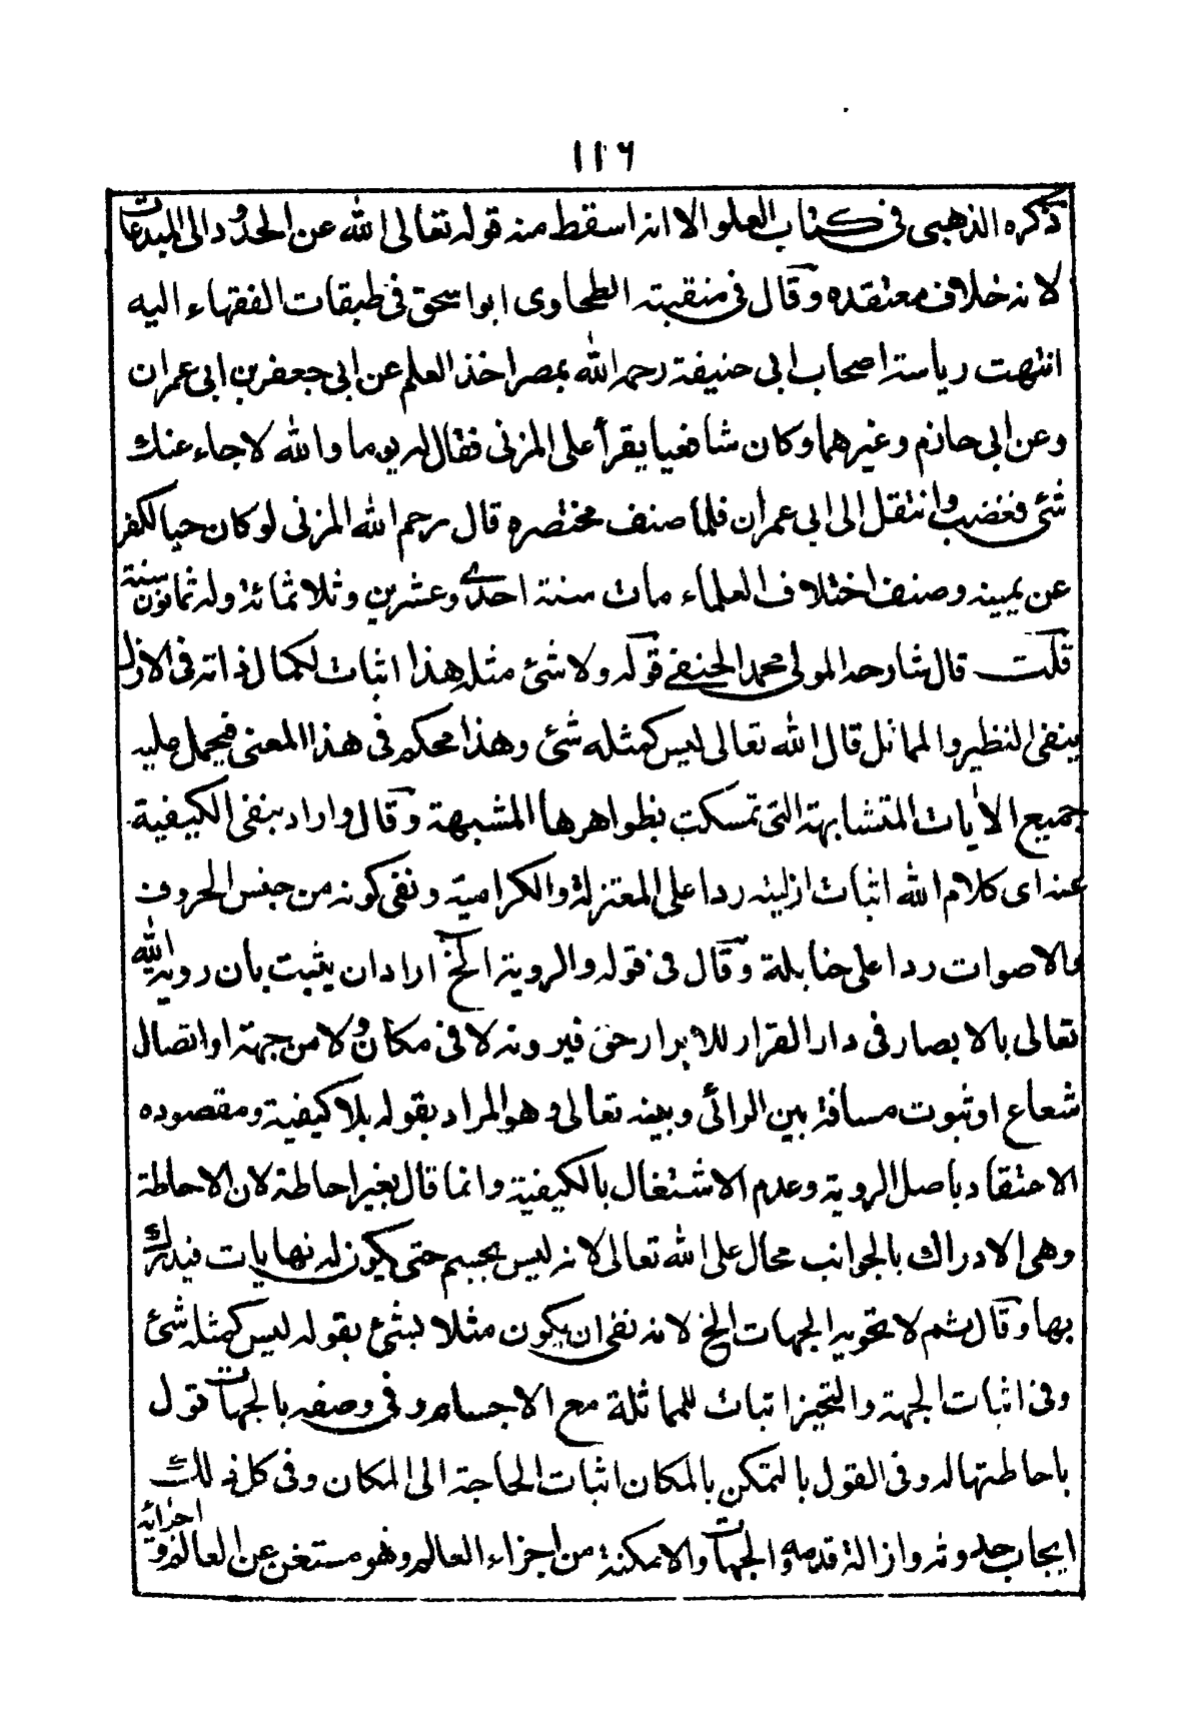 ١١٦
ذكره الذهبى فى كتاب العلو الا انه اسقط منه قوله تعالى الله عن الحدود الى المبدعات
لانه خلاف معتقده وقال فى منقبته الطحاوى ابو اسحق فى طبقات الفقهاء اليه
انتهت رياسة اصحاب ابى حنيفة رحمه الله بمصر اخذ العلم عن ابى جعفر بن ابى عمران
وعن ابى حازم وغيرهما وكان شافعيا يقرأ على المزنى فقال له يوما والله لا جاء عنك
شئ فغضب وانتقل الى ابى عمران فلما صنف مختصره قال رحم الله المزنى لو كان حيا لكفر
عن يمينه وصنف اختلاف العلماء مات سنة احدى وعشرين وثلاثمائة وله ثمانون سنة
قلت قال شارحه المولى محمد الحنفى قوله ولا شئ مثله هذا اثبات لكمال ذاته فى الازل
بنفى النظير والمماثل قال الله تعالى ليس كمثله شئ وهذا محكم فى هذا المعنى فيحمل عليه
جميع الايات المتشابهة التى تمسكت بظواهرها المشبهة وقال واراد بنفى الكيفية
عنه اى كلام الله اثبات ازليته ردا على المعتزلة والكرامية ونفى كونه من جنس الحروف
والاصوات ردا على حنابلة وقال فى قوله والروية الخ اراد ان يثبت بأن روية الله
تعالى بالابصار فى دار القرار للابرار حق فيرونه لا فى مكان ولا من جهة او اتصال
شعاع او ثبوت مسافة بين الرائى وبينه تعالى وهو المراد بقوله بلا كيفية ومقصوده
الاعتقاد باصل الروية وعدم الاشتغال بالكيفية وانما قال بغير احاطة لان الاحاطة
وهى الادراك بالجوانب محال على الله تعالى لانه ليس بجسم حتى يكون له نهايات فيدرك
بها وقال ثم لا تحويه الجهات الخ لانه نفى ان يكون مثلا لشئ بقوله ليس كمثله شئ
وفى اثبات الجهة والتحيز اثبات للمماثلة مع الاجسام وفى وصفه بالجهات قول
باحاطتها له وفى القول بالتمكن بالمكان اثبات الحاجة الى المكان وفى كل ذلك
ايجاب حدوثه وازالة قدمه والجهات والامكنة من اجزاء العالم وهو مستغن عن العالم و اجزائه